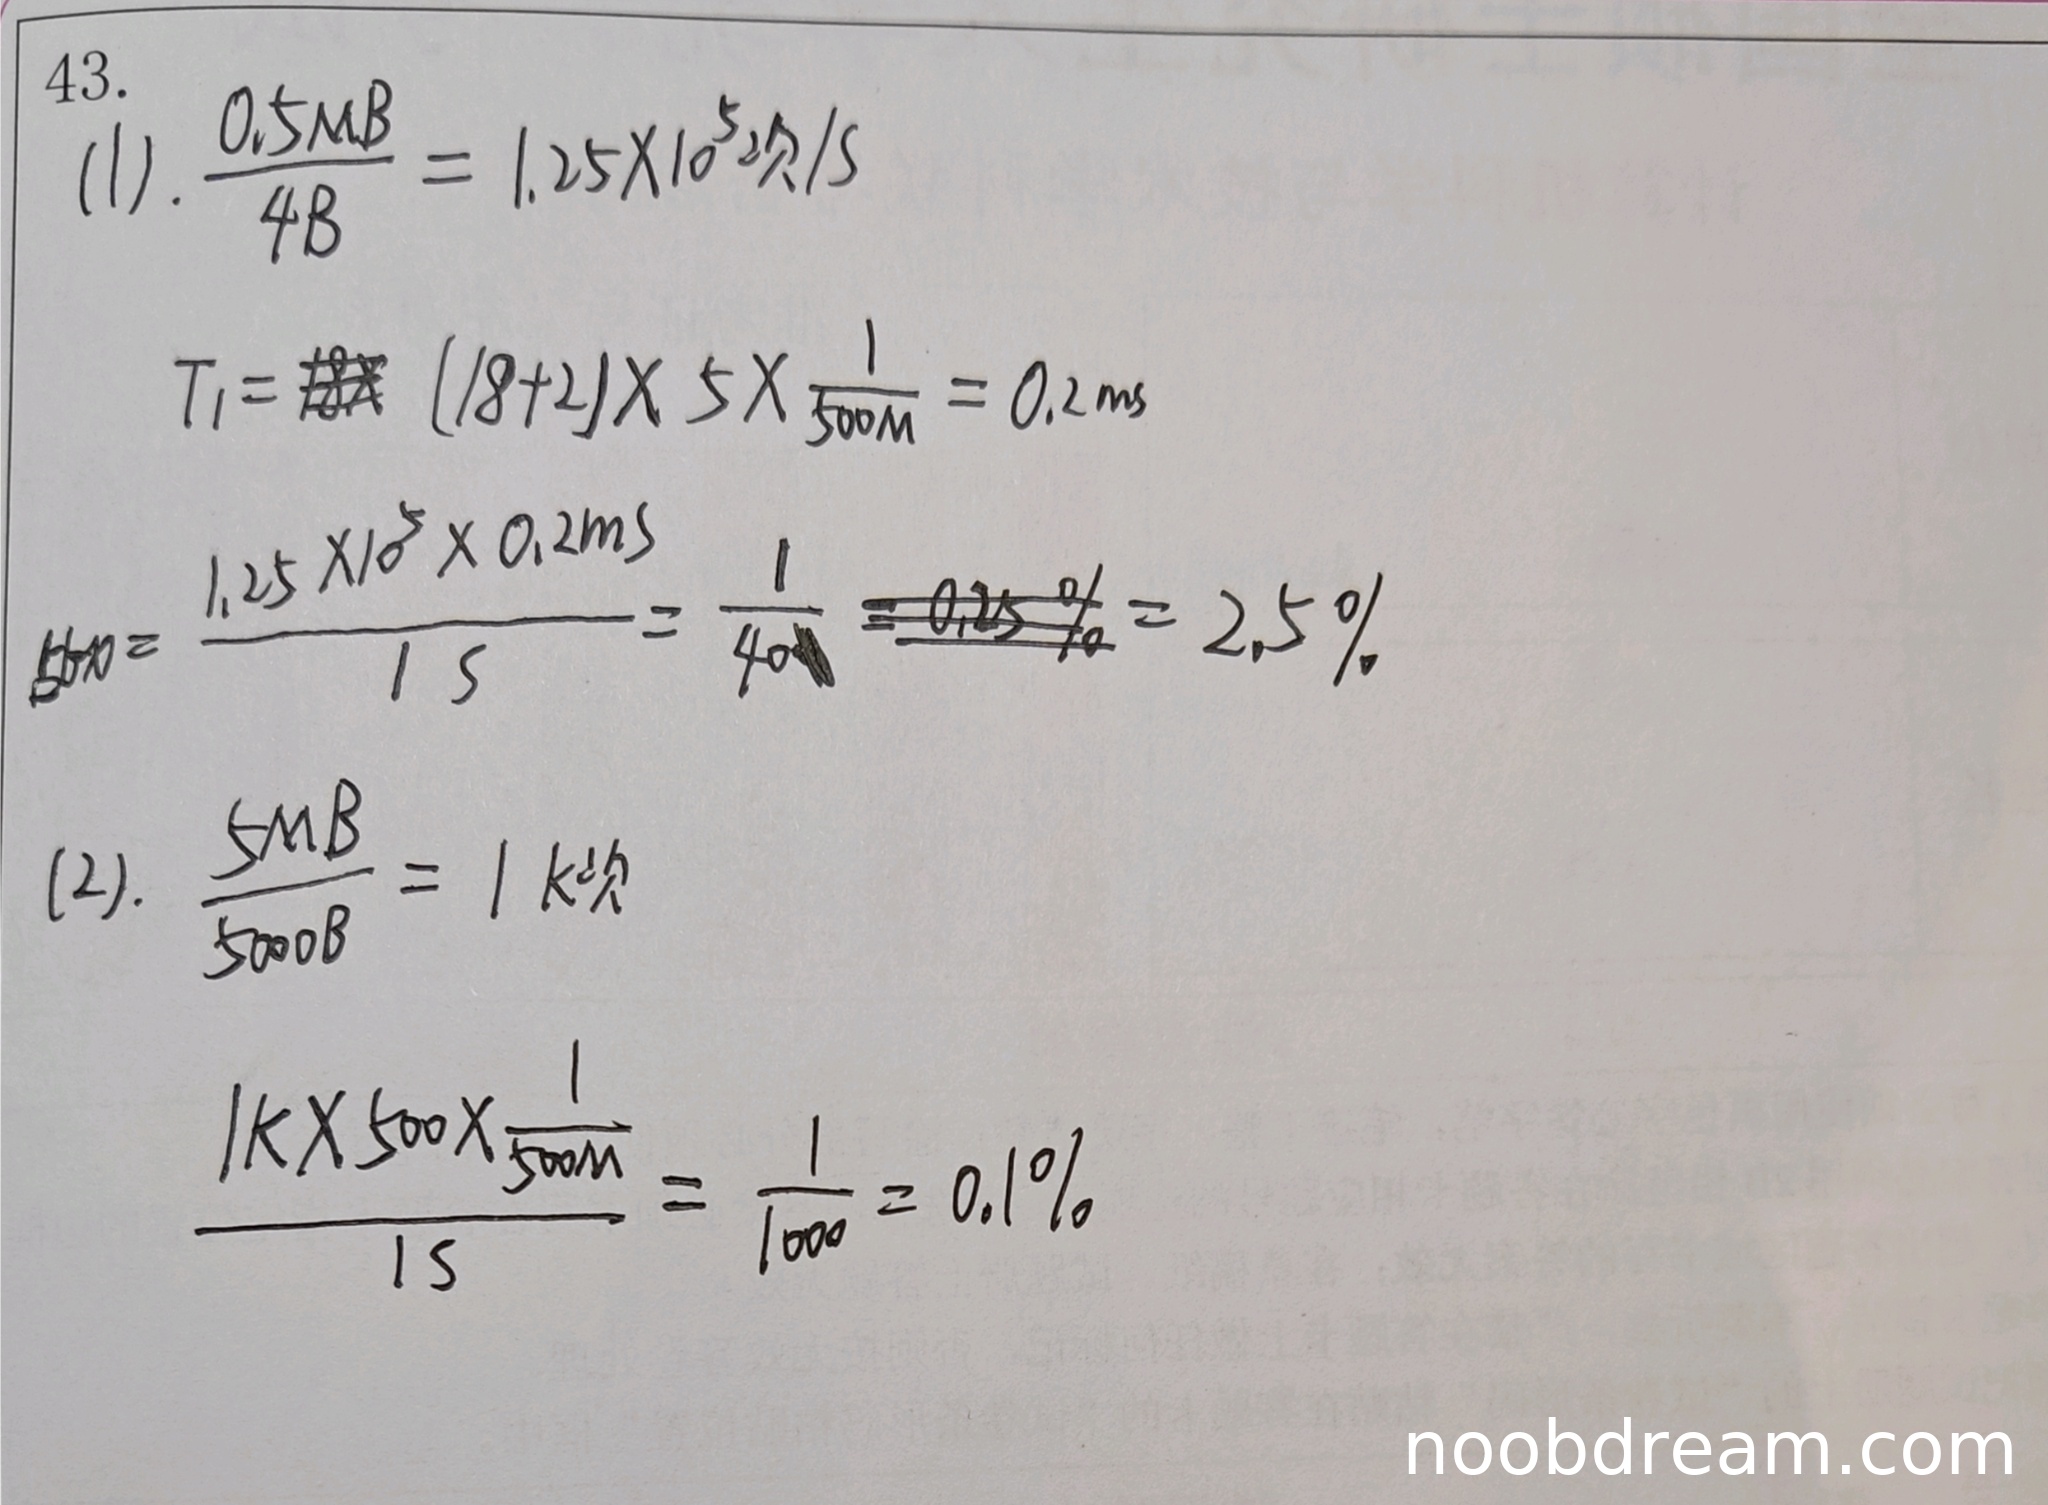 43.
(1). 0.5MB/4B = 1.25×10^5次/s
T1 = (18+2)×5×1/500M = 0.2ms
= 1.25×10^5×0.2ms/1s = 1/40 = 0.25% = 2.5%
(2). 5MB/5000B = 1k次
1k×500×1/500M/1s = 1/1000 = 0.1%
noobdream.com